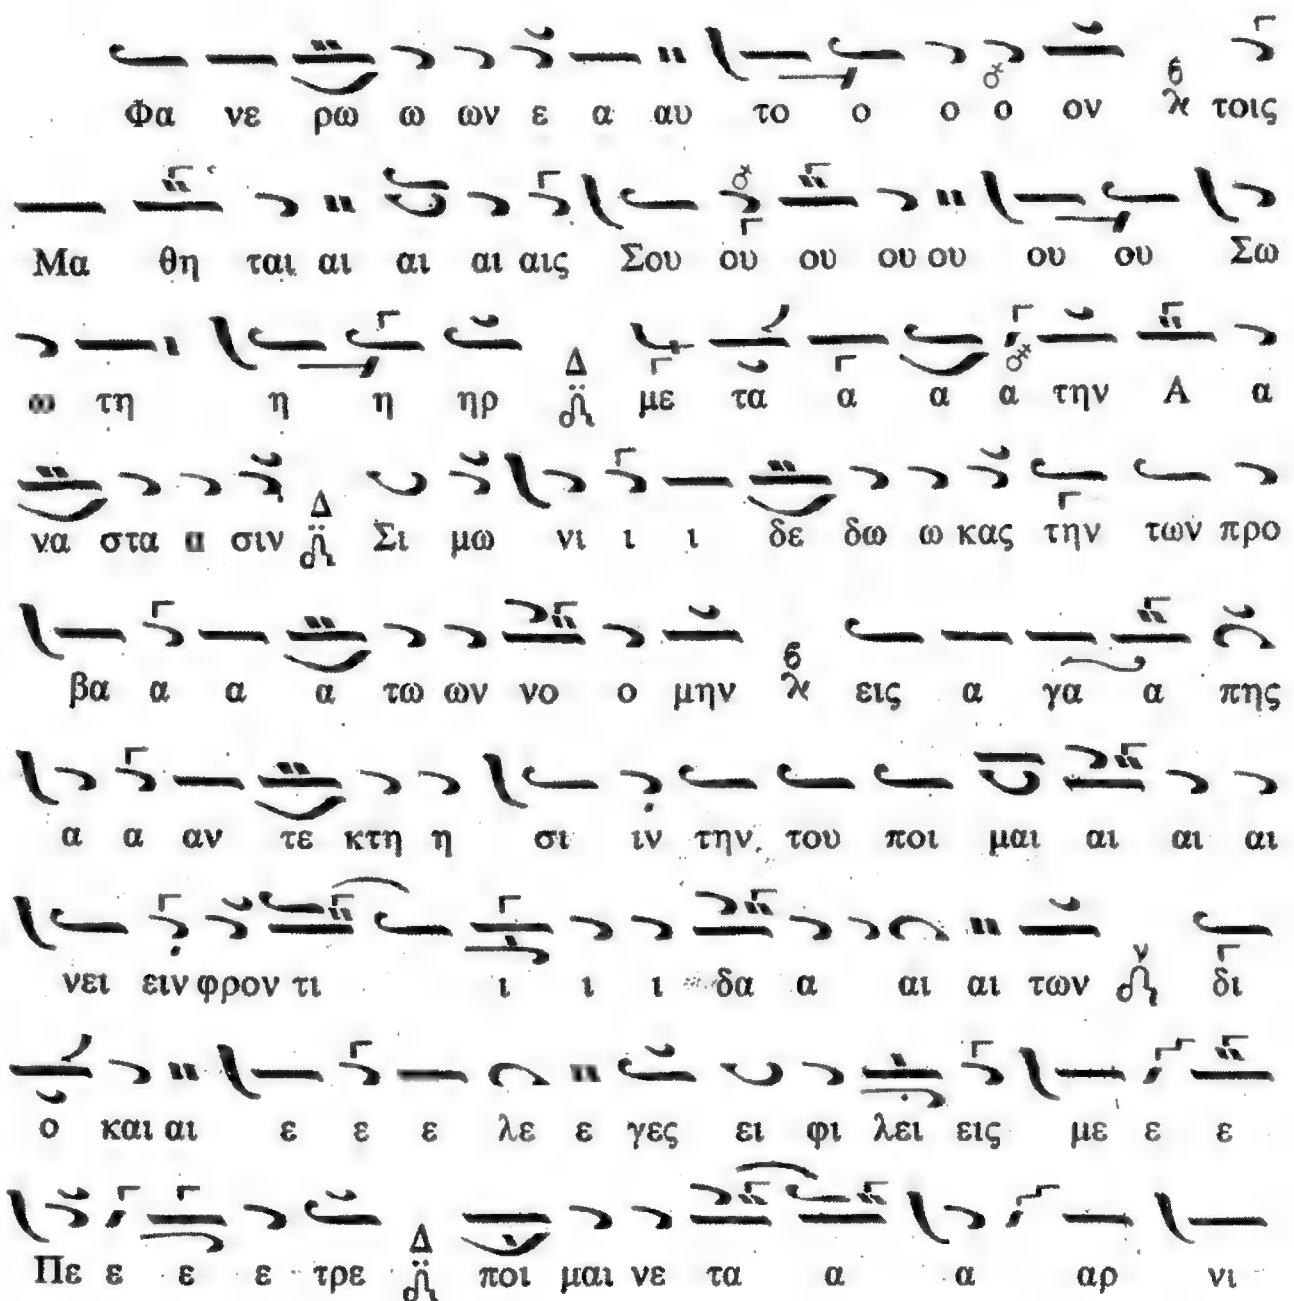 Φα νε ρω ω ων ε α αυ το ο ο ο ον τοις
Μα θη ται αι αι αι αις Σου ου ου ου ου ου ου Σω
ω τη η η ηρ Δ με τα α α α την Α α
να στα α σιν Δ Σι μω νι ι ι δε δω ω κας την των προ
βα α α α τω ων νο ο μην εις α γα α πης
α α αν τε κτη η σι ιν την του ποι μαι αι αι αι
νει ειν φρον τι ι ι ι δα α αι αι των ν δι
ο και αι ε ε ε λε ε γες ει φι λει εις με ε ε
Πε ε ε ε τρε Δ ποι μαι νε τα α α αρ νι